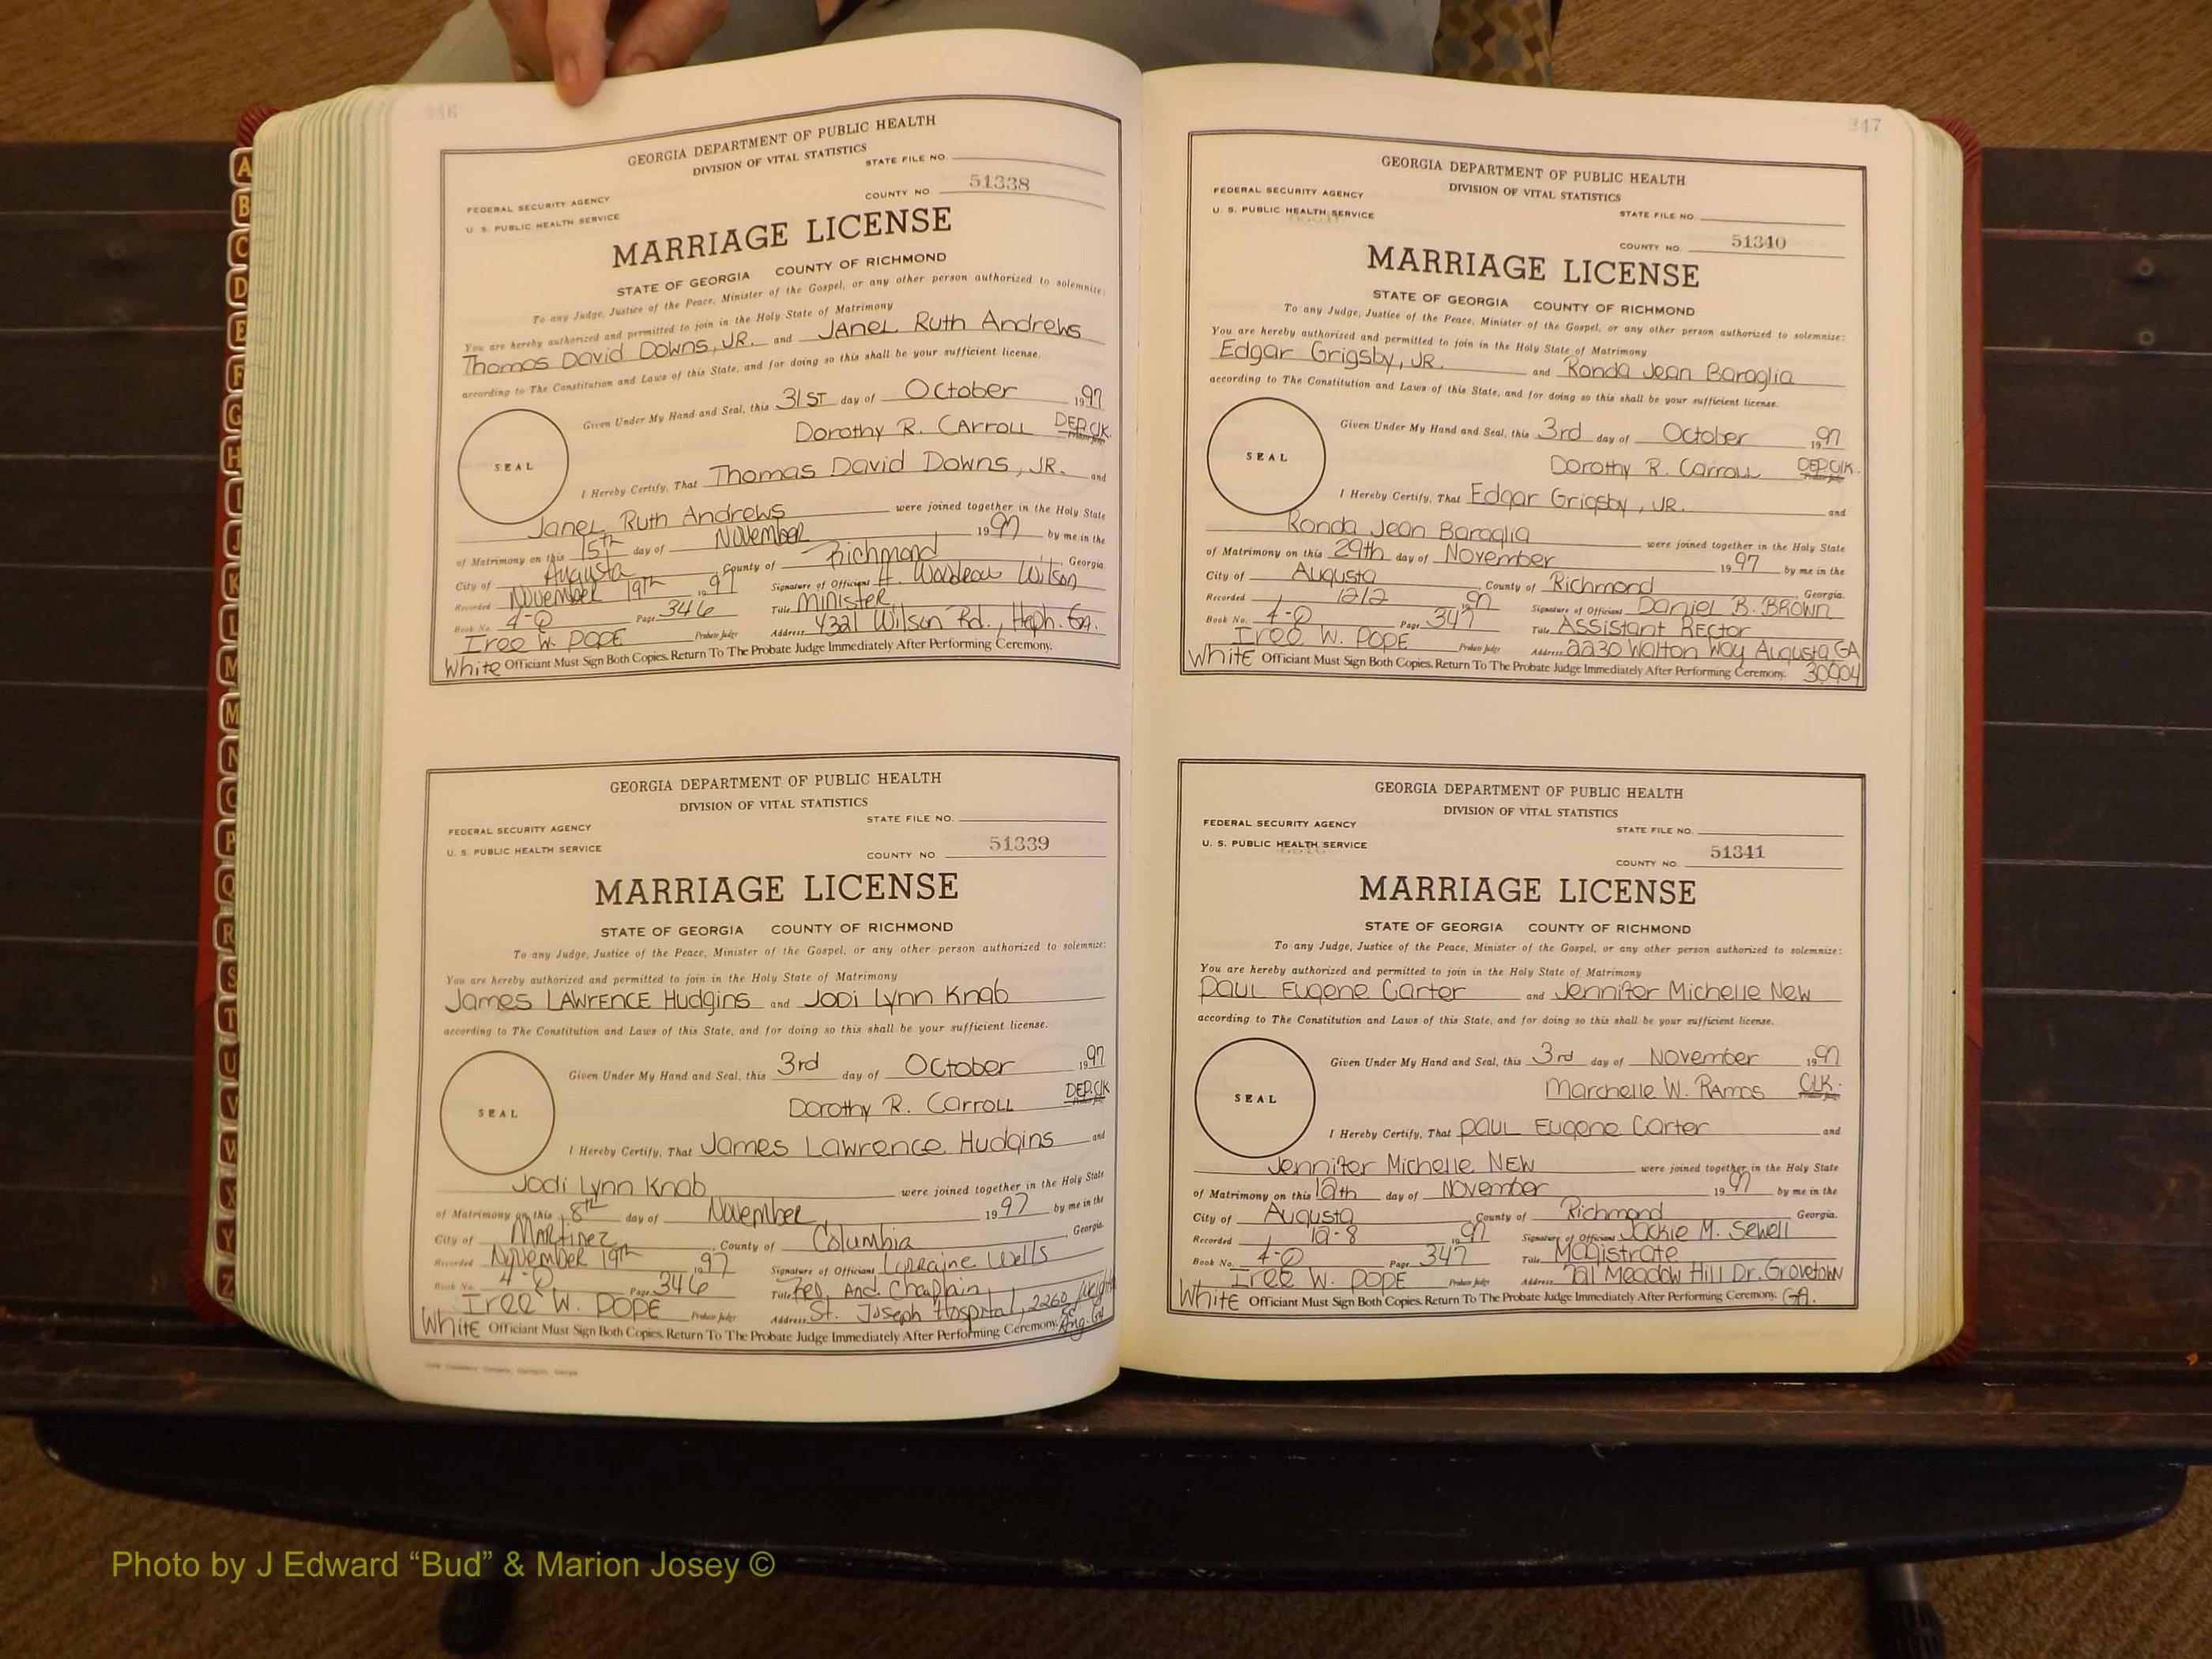 346
GEORGIA DEPARTMENT OF PUBLIC HEALTH
DIVISION OF VITAL STATISTICS
STATE FILE NO.
FEDERAL SECURITY AGENCY
COUNTY NO. 51338
U. S. PUBLIC HEALTH SERVICE
MARRIAGE LICENSE
STATE OF GEORGIA COUNTY OF RICHMOND
To any Judge, Justice of the Peace, Minister of the Gospel, or any other person authorized to solemnize:
You are hereby authorized and permitted to join in the Holy State of Matrimony
Thomas David Downs, JR. and Janel Ruth Andrews
according to The Constitution and Laws of this State, and for doing so this shall be your sufficient license.
Given Under My Hand and Seal, this 31ST day of October 1997
Dorothy R. Carroll DEP. Clk
SEAL
I Hereby Certify, That Thomas David Downs, JR. and
Janel Ruth Andrews were joined together in the Holy State
of Matrimony on this 15th day of November 1997 by me in the
City of Augusta County of Richmond, Georgia.
Recorded November 19th 1997 Signature of Officiant Wilson
Book No. 4-Q Page 346 Title Minister
Iree W. Pope Probate Judge Address 4321 Wilson Rd., Heph. Ga.
White Officiant Must Sign Both Copies. Return To The Probate Judge Immediately After Performing Ceremony.
GEORGIA DEPARTMENT OF PUBLIC HEALTH
DIVISION OF VITAL STATISTICS
STATE FILE NO.
FEDERAL SECURITY AGENCY
U. S. PUBLIC HEALTH SERVICE
COUNTY NO 51339
MARRIAGE LICENSE
STATE OF GEORGIA COUNTY OF RICHMOND
To any Judge, Justice of the Peace, Minister of the Gospel, or any other person authorized to solemnize:
You are hereby authorized and permitted to join in the Holy State of Matrimony
James Lawrence Hudgins and Jodi Lynn Knab
according to The Constitution and Laws of this State, and for doing so this shall be your sufficient license.
Given Under My Hand and Seal, this 3rd day of October 1997
Dorothy R. Carroll DEP. Clk
SEAL
I Hereby Certify, That James Lawrence Hudgins and
Jodi Lynn Knab were joined together in the Holy State
of Matrimony on this 8th day of November 1997 by me in the
City of Martinez, County of Columbia, Georgia.
Recorded November 19th 1997 Signature of Officiant Lorraine Wells
Book No. 4-Q Page 346 Title And Chaplain
Iree W. Pope Probate Judge Address St. Joseph Hospital, 2260
White Officiant Must Sign Both Copies. Return To The Probate Judge Immediately After Performing Ceremony.
347
GEORGIA DEPARTMENT OF PUBLIC HEALTH
DIVISION OF VITAL STATISTICS
FEDERAL SECURITY AGENCY
U. S. PUBLIC HEALTH SERVICE
STATE FILE NO.
COUNTY NO. 51340
MARRIAGE LICENSE
STATE OF GEORGIA COUNTY OF RICHMOND
To any Judge, Justice of the Peace, Minister of the Gospel, or any other person authorized to solemnize:
You are hereby authorized and permitted to join in the Holy State of Matrimony
Edgar Grigsby, JR. and Ronda Jean Baraglia
according to The Constitution and Laws of this State, and for doing so this shall be your sufficient license.
Given Under My Hand and Seal, this 3rd day of October 1997
Dorothy R. Carroll DEP. Clk.
SEAL
I Hereby Certify, That Edgar Grigsby, JR. and
Ronda Jean Baraglia were joined together in the Holy State
of Matrimony on this 29th day of November 1997 by me in the
City of Augusta, County of Richmond Georgia.
Recorded 12/2 1997 Signature of Officiant Daniel B. Brown
Book No. 4-Q Page 347 Title Assistant Rector
Iree W. Pope Probate Judge Address 2230 Walton Way Augusta GA
White Officiant Must Sign Both Copies. Return To The Probate Judge Immediately After Performing Ceremony. 30904
GEORGIA DEPARTMENT OF PUBLIC HEALTH
DIVISION OF VITAL STATISTICS
FEDERAL SECURITY AGENCY
STATE FILE NO.
U. S. PUBLIC HEALTH SERVICE
COUNTY NO. 51341
MARRIAGE LICENSE
STATE OF GEORGIA COUNTY OF RICHMOND
To any Judge, Justice of the Peace, Minister of the Gospel, or any other person authorized to solemnize:
You are hereby authorized and permitted to join in the Holy State of Matrimony
Paul Eugene Carter and Jennifer Michelle New
according to The Constitution and Laws of this State, and for doing so this shall be your sufficient license.
Given Under My Hand and Seal, this 3rd day of November 1997
Marchelle W. Ramos Clk.
SEAL
I Hereby Certify, That Paul Eugene Carter and
Jennifer Michelle New were joined together in the Holy State
of Matrimony on this 12th day of November 1997 by me in the
City of Augusta, County of Richmond Georgia.
Recorded 12-8 1997 Signature of Officiant Jackie M. Sewell
Book No. 4-Q Page 347 Title Magistrate
Iree W. Pope Probate Judge Address 721 Meadow Hill Dr. Grovetown
White Officiant Must Sign Both Copies. Return To The Probate Judge Immediately After Performing Ceremony. GA.
A
B
C
D
E
F
G
H
I
J
K
L
M
M
N
O
P
Q
R
S
T
U
V
W
X
Y
Z
Photo by J Edward “Bud” & Marion Josey ©